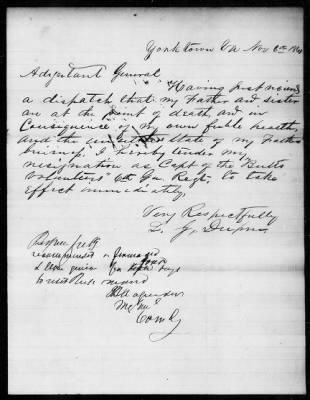 York town Va Nov 6th 186
Adjutant General
Having just received
a dispatch that my Father and sister
are at the point of death, and in
Consequence of my own feeble health,
and the State of my Fathers
business, I hereby tender my
resignation as Capt of the Butts
Volunteers 6th Ga Regt, to take
effect immediately,
Very Respectfully
L. J. Dupree
Respectfully
recommended & forwarded
& leave given for days
Comdg